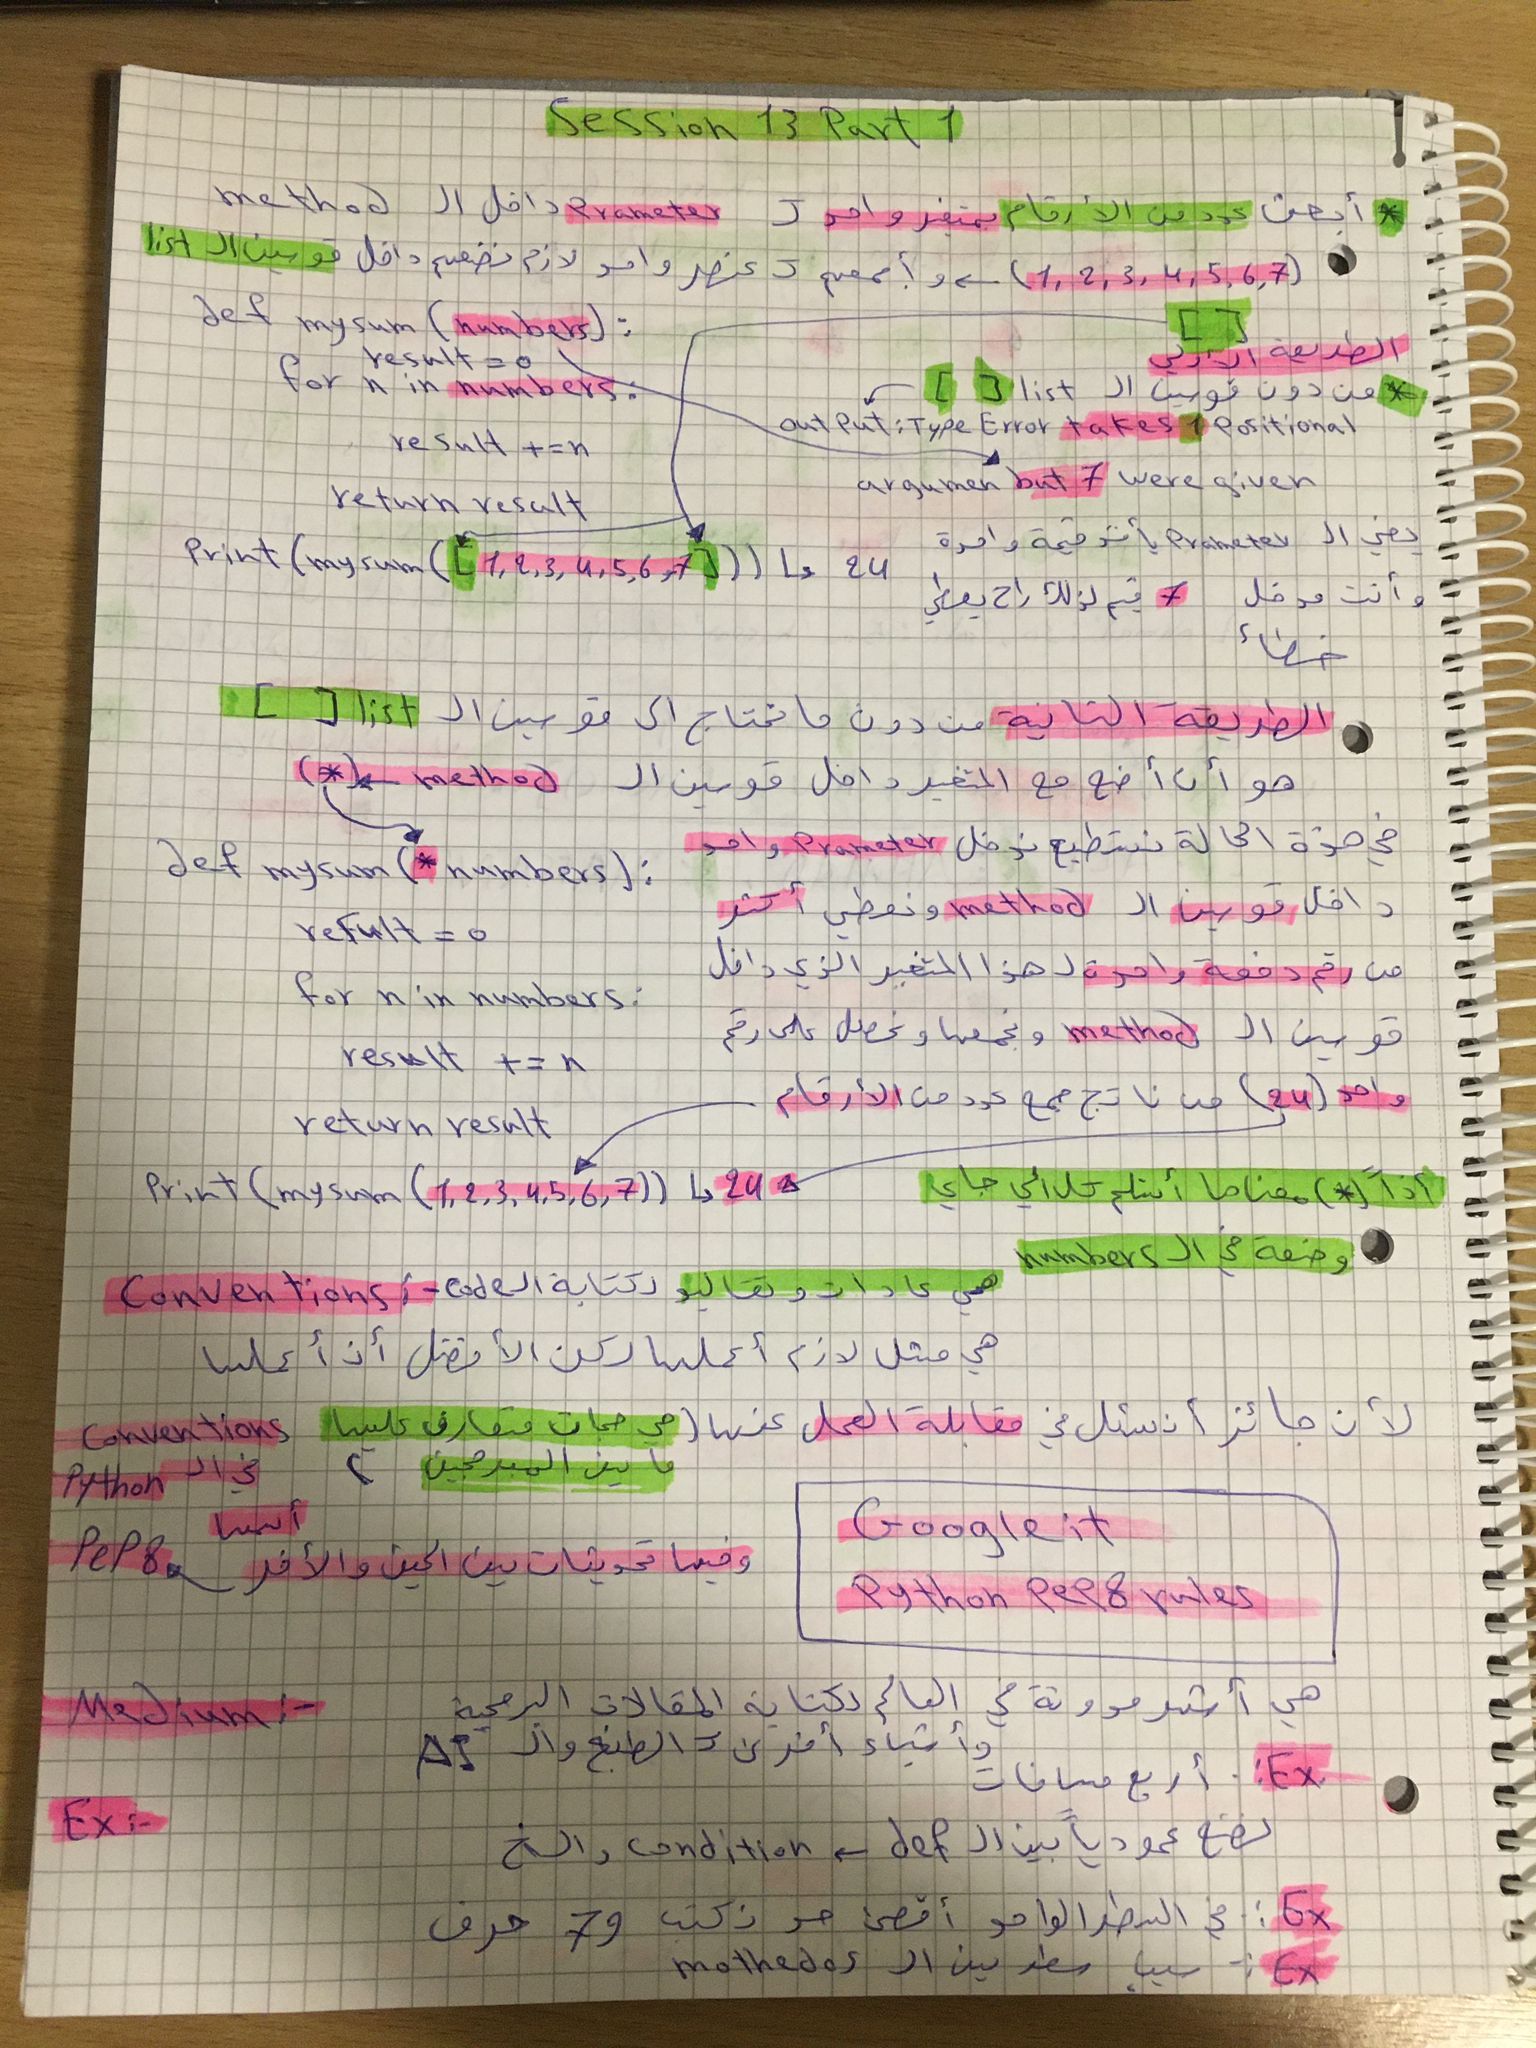 Session 13 Part 1
* أبعث عدد من الأرقام بمتغير واحد لـ Prameter داخل الـ method
(1, 2, 3, 4, 5, 6, 7) ← و أجمعهم لـ عنصر واحد لازم نضعهم داخل قوسين الـ list
[ ]
def mysum(numbers):
result = 0
for n in numbers:
result += n
return result
print(mysum([1,2,3,4,5,6,7])) ↳ 24
الطريقة الأولى
* من دون قوسين الـ list [ ]
output: Type Error takes 1 Positional
argumen but 7 were given
يعني الـ Prameter يأخذ قيمة واحدة
وأنت مدخل 7 قيم لذلك راح يعطي
خطاء
الطريقة الثانية من دون ما نحتاج الى قوسين الـ list [ ]
هو أن أضع مع المتغير داخل قوسين الـ method ← (*)
في هذة الحالة نستطيع ندخل Prameter واحد
داخل قوسين الـ method ونعطي أكثر
من رقم دفعة واحدة لـ هذا المتغير الذي داخل
قوسين الـ method ونجمعها ونحصل على رقم
واحد (24) من ناتج جمع عدد من الأرقام
def mysum(* numbers):
result = 0
for n in numbers:
result += n
return result
print(mysum(1,2,3,4,5,6,7)) ↳ 24
أذاً (*) معناها أستلم كل الي جاي
وضعة في الـ numbers
Conventions:- هي عادات وتقاليد لكتابة الـ code
هي مثل لازم أعملها لكن الأفضل أن أعملها
لأن جائز أنسئل في مقابلة العمل عنها (هي صحات متعارف عليها
ما بين المبرمجين )
Conventions
في الـ Python
أسمها
PeP8
وفيها تحديثات بين الحين والأخر
Google it
Python PeP8 rules
Medium:- هي أشهر مدونة في العالم لكتابة المقالات البرمجية
وأشياء أخرى كـ الطبخ والـ AI
Ex:-
Ex:. أربع مسافات
نضع عمودياً بين الـ def ← condition والـخ
Ex:. في السطر الواحد أقصى حد نكتب 79 حرف
Ex:- سيب سطرين الـ mothedos